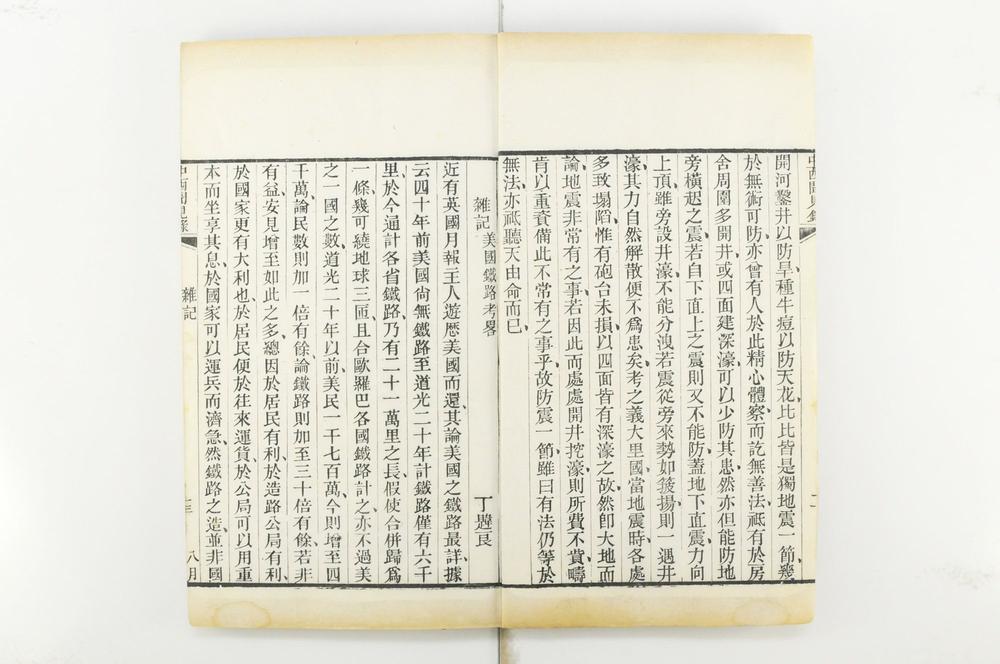 開河鑿井以防旱、種牛痘以防天花、比比皆是、獨地震一節、幾
於無術可防、亦曾有人於此精心體察、而訖無善法、祗有於房
舍周圍多開井、或四面建深濠、可以少防其患、然亦但能防地
旁橫起之震、若自下直上之震、則又不能防、蓋地下直震、力向
上頂、雖旁設井濠、不能分洩、若震從旁來、勢如簸揚、則一遇井
濠、其力自然解散、便不爲患矣、考之義大里國當地震時、各處
多致塌陷、惟有砲台未損、以四面皆有深濠之故、然即大地而
論、地震非常有之事、若因此而處處開井挖濠、則所費不貲、疇
肯以重資備此不常有之事乎、故防震一節、雖曰有法、仍等於
無法、亦祗聽天由命而已、
雜記 美國鐵路考畧 丁韙良
近有英國月報主人遊歷美國而還、其論美國之鐵路最詳、據
云四十年前美國尚無鐵路、至道光二十年計鐵路僅有六千
里、於今通計各省鐵路、乃有二十一萬里之長、假使合併歸爲
一條、幾可繞地球三匝、且合歐羅巴各國鐵路計之、亦不過美
之一國之數、道光二十年以前、美民一千七百萬、今則增至四
千萬、論民數則加一倍有餘、論鐵路則加至三十倍有餘、若非
有益、安見增至如此之多、總因於居民有利、於造路公局有利、
於國家更有大利也、於居民便於往來運貨、於公局可以用重
本而坐享其息、於國家可以運兵而濟急、然鐵路之造、並非國
中西聞見錄 雜記 三 八月